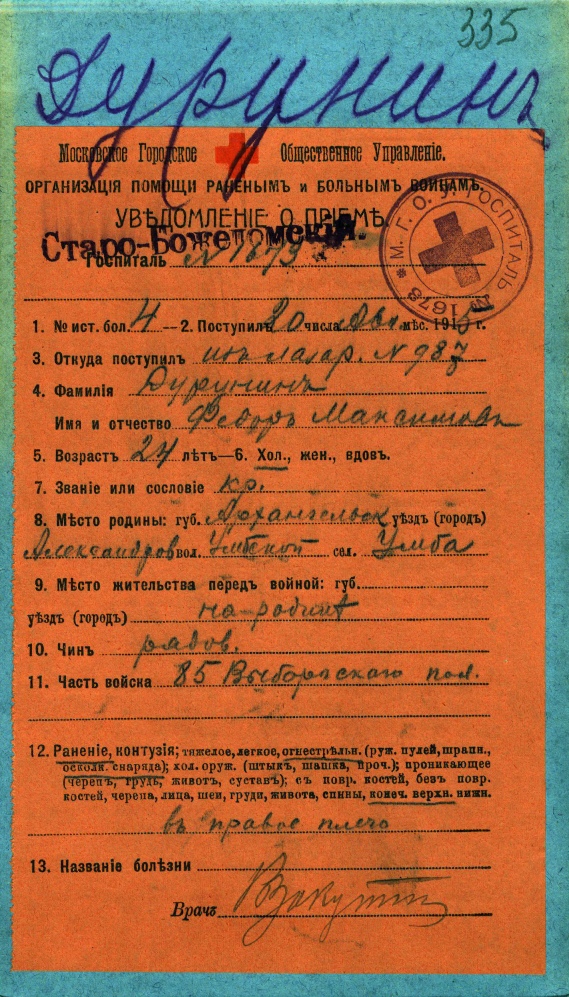 335
Дурунинъ
Московское Городское Общественное Управленіе.
ОРГАНИЗАЦІЯ ПОМОЩИ РАНЕНЫМЪ и БОЛЬНЫМЪ ВОИНАМЪ.
УВѢДОМЛЕНІЕ О ПРІЕМѢ
Старо-Божедомскій.
Госпиталь N 1673
М. Г. О. У. ГОСПИТАЛЬ № 1673
1. № ист. бол. 4 —2. Поступилъ 20 числа Авг мѣс. 191 г.
3. Откуда поступилъ изъ лазар. N 987
4. Фамилія Дурунинъ
Имя и отчество Федоръ Максимовъ
5. Возрастъ 24 лѣтъ—6. Хол., жен., вдов.
7. Званіе или сословіе кр.
8. Мѣсто родины: губ. Архангельск уѣздъ (городъ)
Александров вол. Умбской сел. Умба
9. Мѣсто жительства передъ войной: губ.
уѣздъ (городъ) на родинѣ
10. Чинъ рядов.
11. Часть войска 85 Выборгскаго пол.
12. Раненіе, контузія; тяжелое, легкое, огнестрѣльн. (руж. пулей, шрапн.,
осколк. снаряда); хол. оруж. (штыкъ, шашка, проч.); проникающее
(черепъ, грудь, животъ, суставъ); съ повр. костей, безъ повр.
костей, черепа, лица, шеи, груди, живота, спины, конеч. верхн. нижн.
въ правое плечо
13. Названіе болѣзни
Врачъ